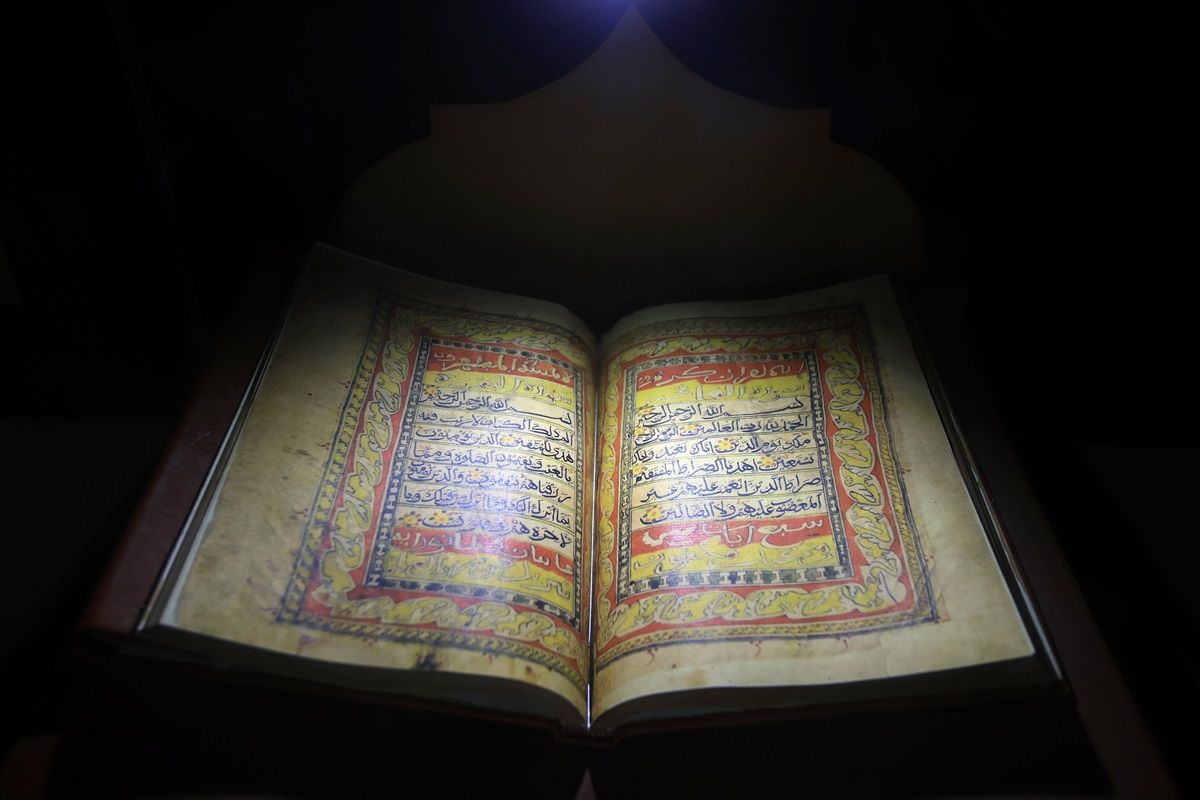 انه لقران كريم
سورة الفاتحة
بسم الله الرحمن الرحيم
الحمد لله رب العالمين الرحمن
ملك يوم الدين اياك نعبد واياك
نستعين اهدنا الصراط المستقيم
صراط الذين انعمت عليهم غير
المغضوب عليهم ولا الضالين
سبع ايات
المطهرون
سورة البقرة
بسم الله الرحمن الرحيم
الم ذلك الكتاب لا ريب فيه
هدى للمتقين الذين يؤمنون
بالغيب ويقيمون الصلوة ومما
رزقناهم ينفقون والذين يؤمنو
بما انزل اليك وما انزل من قبلك وبا
لاخرة هم يوقنون